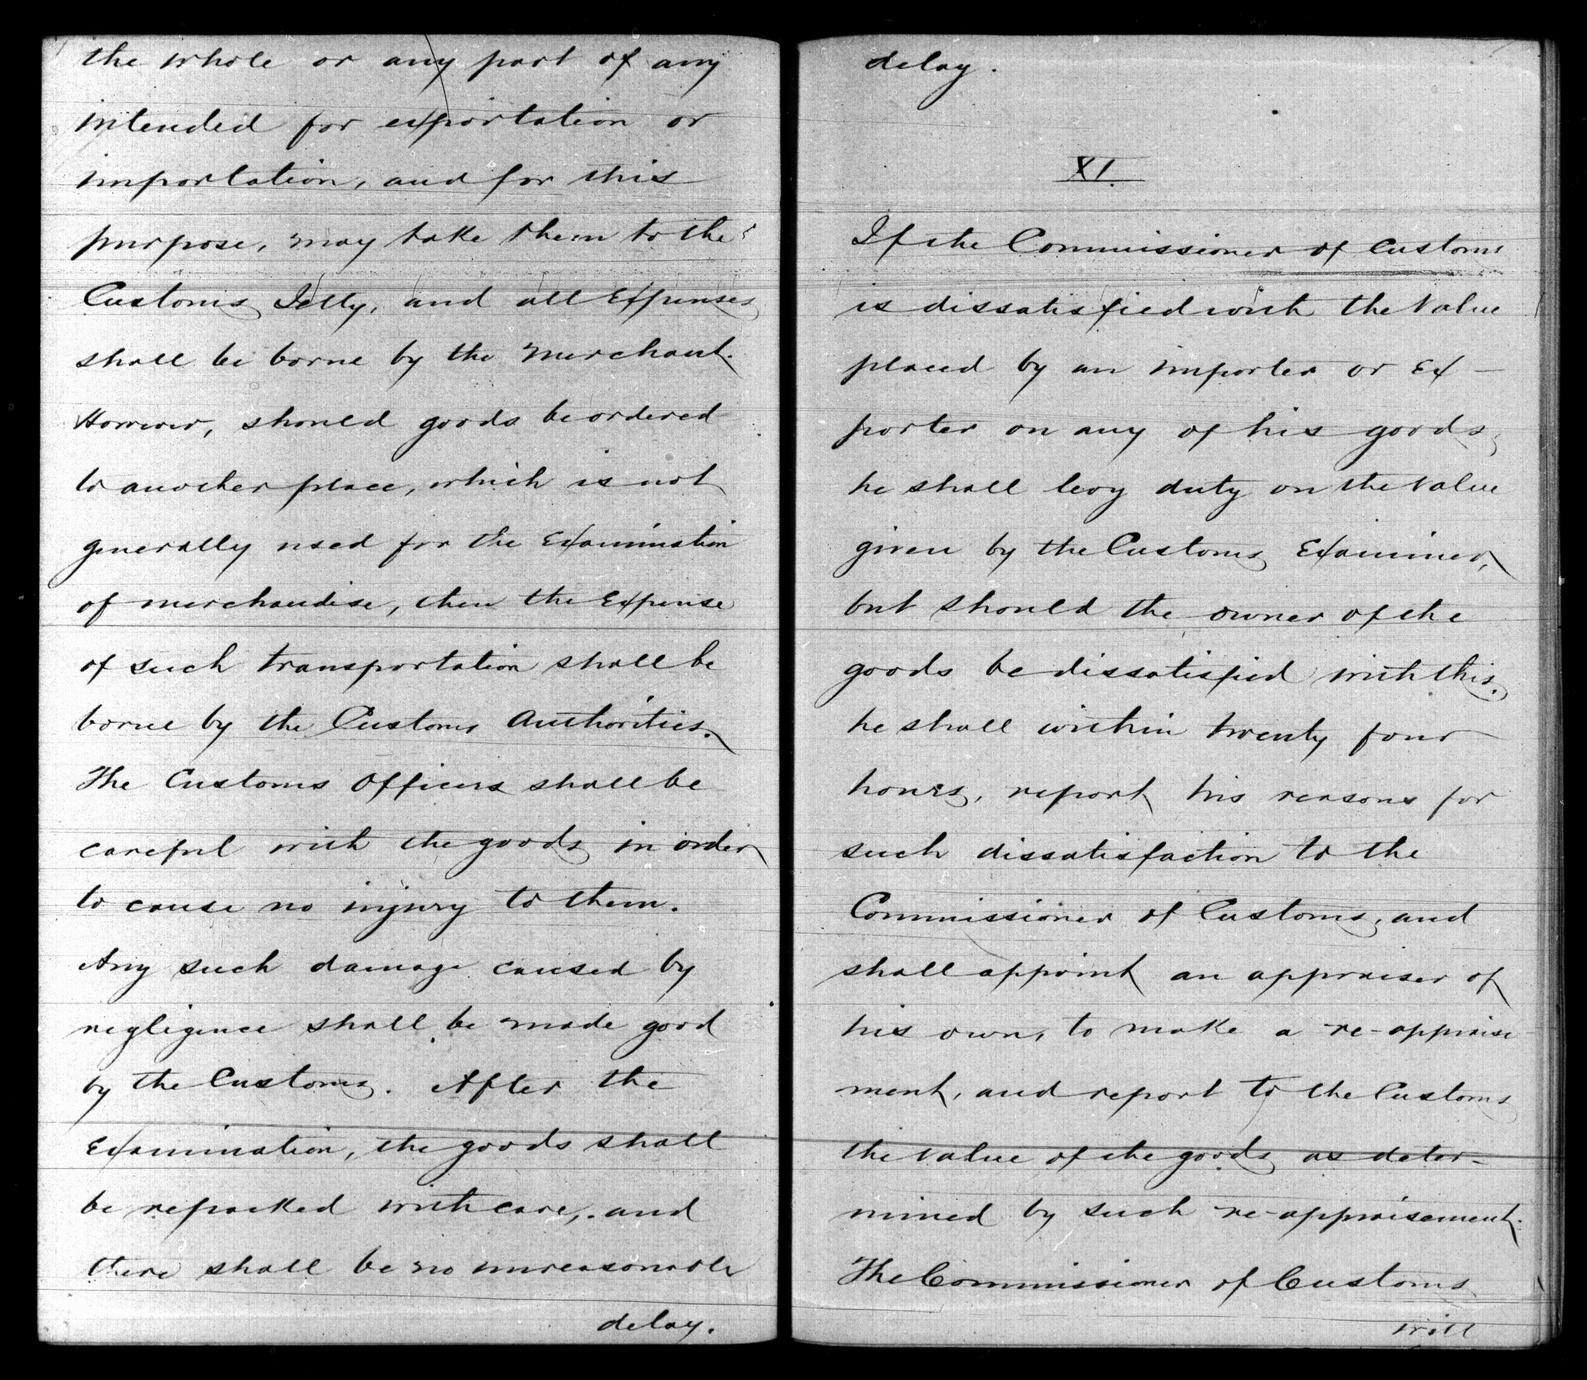 the whole or any part of any
intended for exportation or
importation, and for this
purpose, may take them to the
Customs Jetty, and all Expenses
shall be borne by the merchant.
However, should goods be ordered
to another place, which is not
generally used for the Examination
of merchandise, then the Expense
of such transportation shall be
borne by the Customs Authorities.
The Customs Officers shall be
careful with the goods in order
to cause no injury to them.
Any such damage caused by
negligence shall be made good
by the Customs. After the
Examination, the goods shall
be repacked with care, and
there shall be no unreasonable
delay.
delay.
XI.
If the Commissioner of Customs
is dissatisfied with the value
placed by an importer or Ex-
porter on any of his goods,
he shall levy duty on the value
given by the Customs Examiner,
but should the owner of the
goods be dissatisfied with this,
he shall within twenty four
hours, report his reasons for
such dissatisfaction to the
Commissioner of Customs, and
shall appoint an appraiser of
his own, to make a re-appraise
ment, and report to the Customs
the value of the goods as deter-
mined by such re-appraisement.
The Commissioner of Customs
will